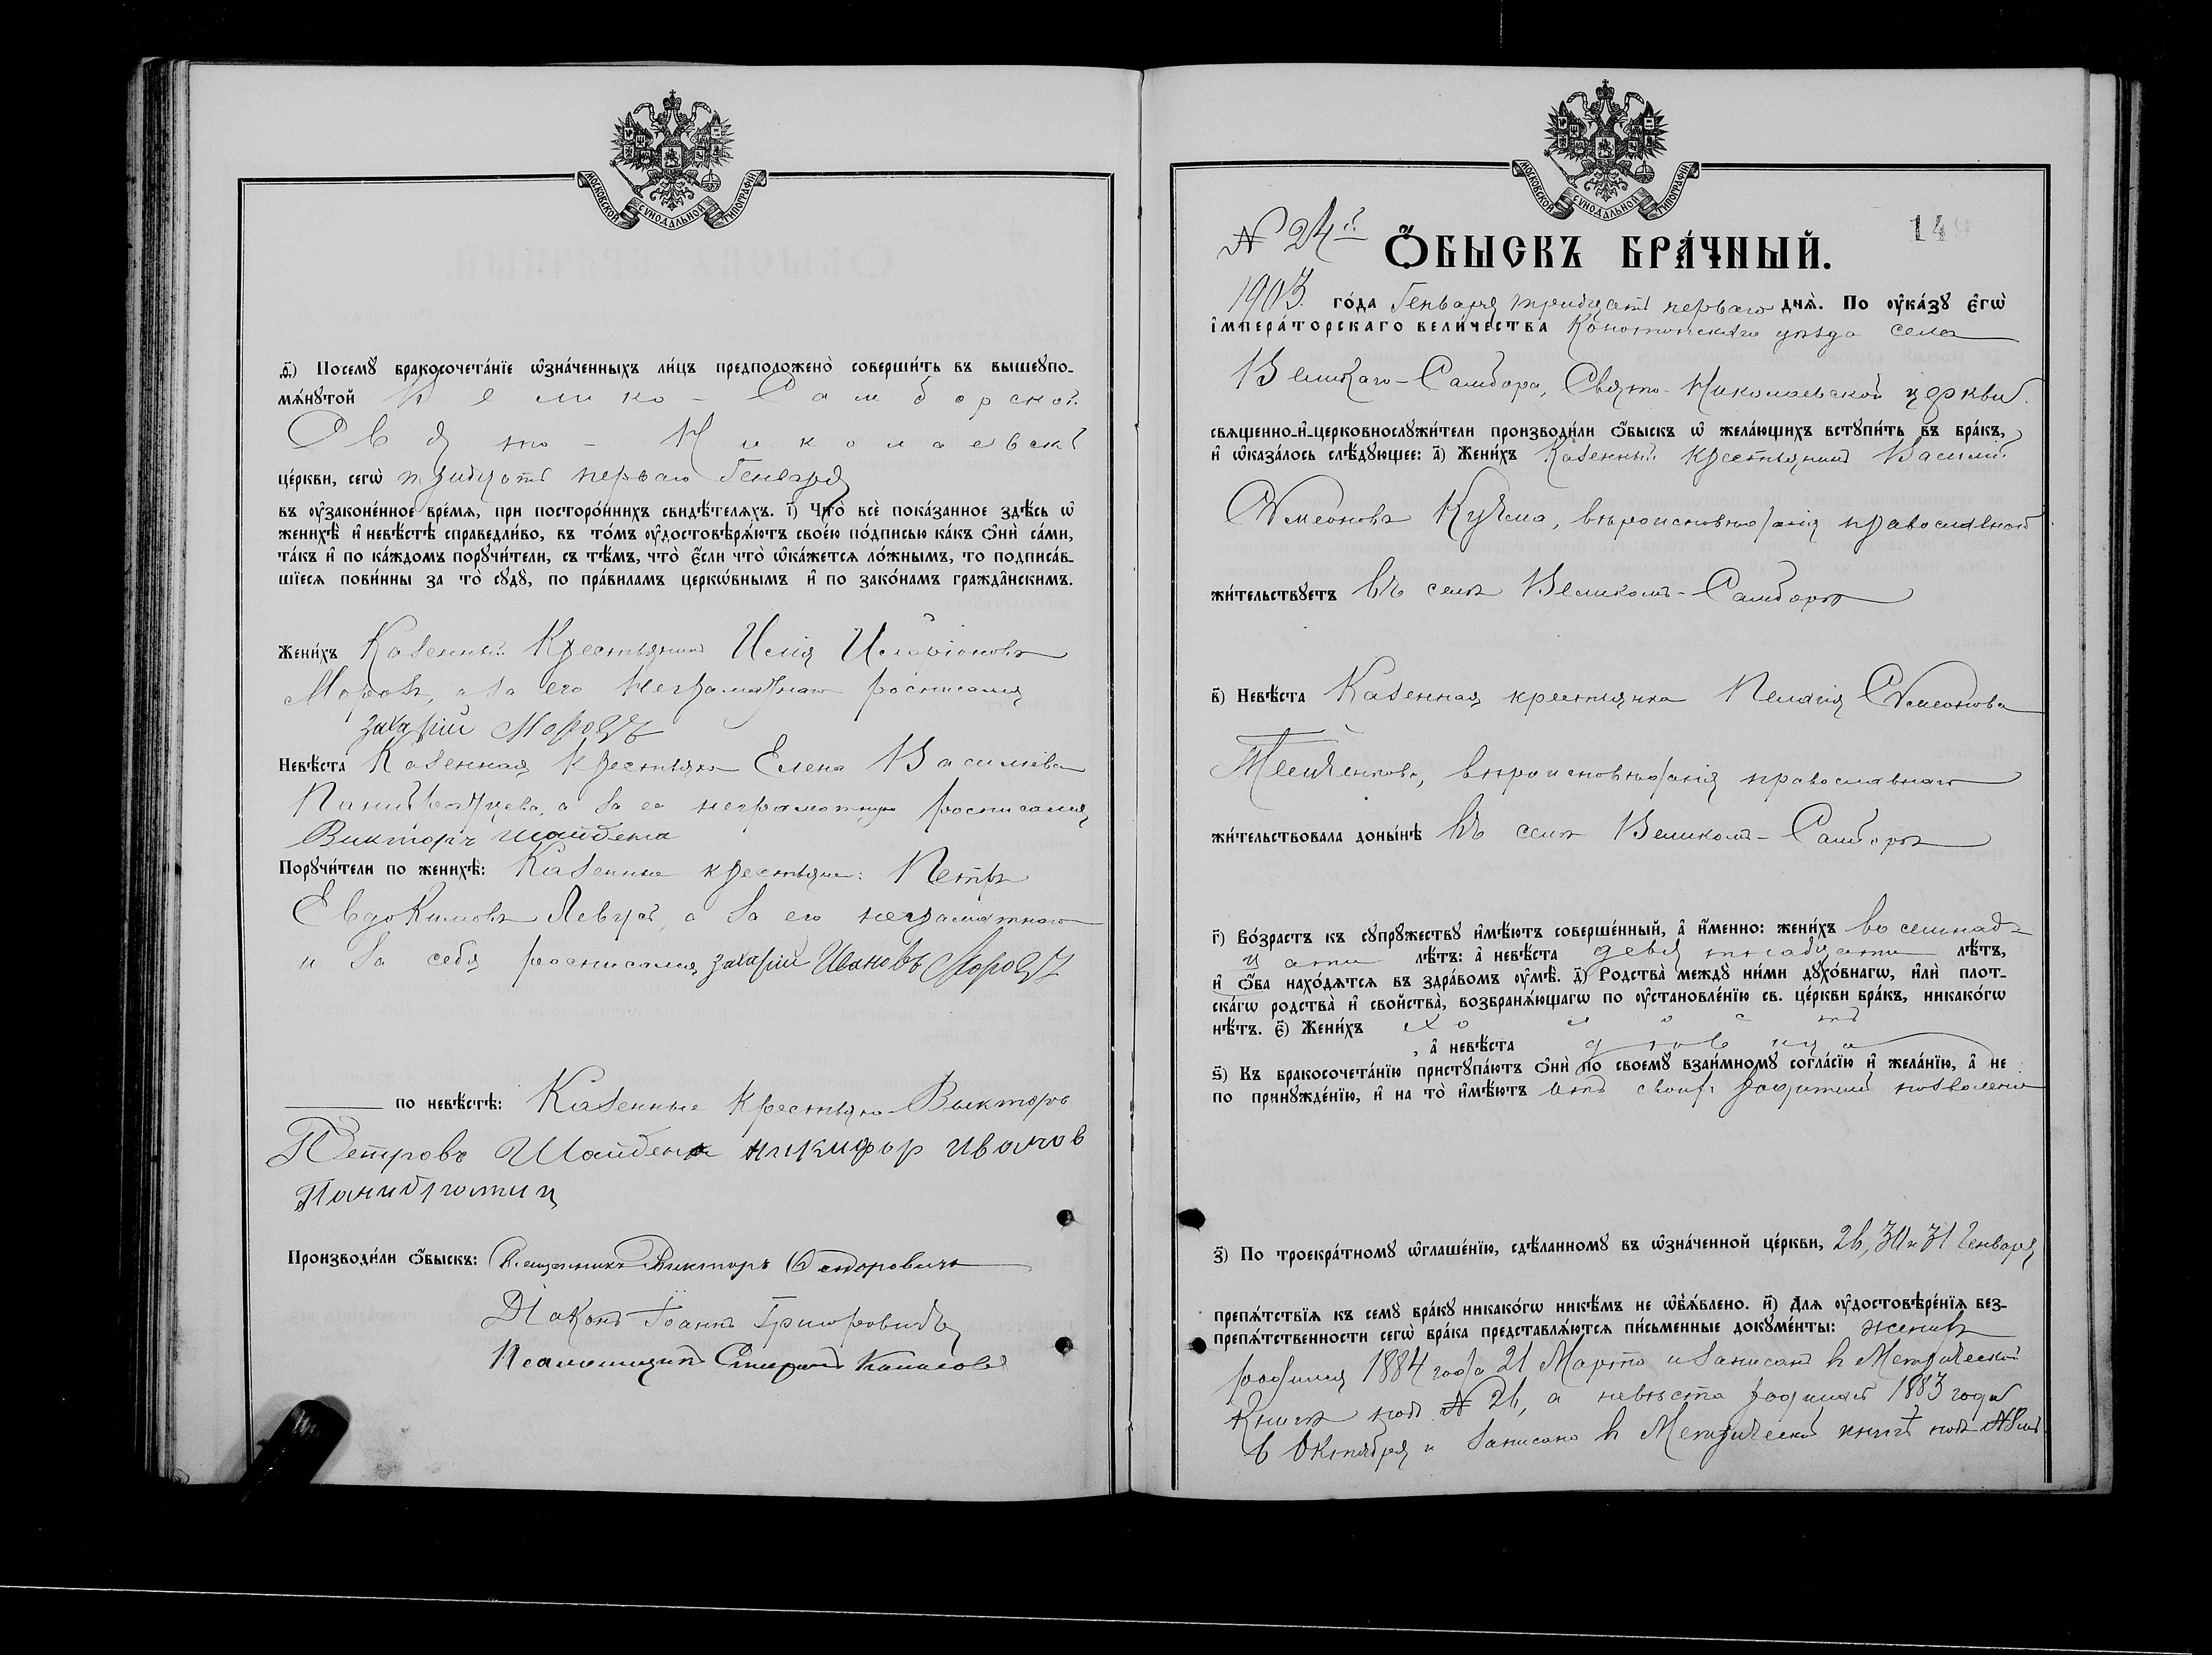 МОСКОВСКОЙ СѴНОДАЛЬНОЙ ТИПОГРАФІИ
ѳ҃) Посемꙋ̀ бракосочета́нїе ѡ҆зна́ченныхъ ли́цъ предположено̀ соверши́ть въ вышеꙋпо-
мѧ́нꙋтой Велико-Самборской
Свято-Николаевской
це́ркви, сегѡ̀ тридцать перваго Генваря
въ ᲂу҆зако́ненное вре́мѧ, при посторо́ннихъ свидѣ́телѧхъ. і҃) Что̀ всѐ пока́занное здѣ́сь ѡ҆
женихѣ̀ и҆ невѣ́стѣ справедли́во, въ то́мъ ᲂу҆достовѣрѧ́ютъ свое́ю по́дписью ка́къ ѻ҆нѝ са́ми,
та́къ и҆ по ка́ждомъ порꙋчи́тели, съ тѣ́мъ, что̀ є҆́сли что̀ ѡ҆ка́жетсѧ ло́жнымъ, то подписа́в-
шїесѧ пови́нны за то̀ сꙋдꙋ̀, по пра́виламъ церкѡ́внымъ и҆ по зако́намъ гражда̑нскимъ.
Жени́хъ Казенный Крестьянинъ Илія Иларіоновъ
Морозъ, а за его неграмотнаго росписался
Захарій Морозъ
Невѣ́ста Казенная Крестьянка Елена Василіева
а за ее неграмотную росписался
Викторъ Шайдена
Порꙋчи́тели по женихѣ̀: Казенные крестьяне: Петръ
Евдокимовъ Левцой, а за его неграмотнаго
и за себя росписался Захарій Ивановъ Морозъ
по невѣ́стѣ: Казенные Крестьяне Викторъ
Петровъ Шайдена Никифор Иванов
Производи́ли ѻ҆́быскъ: Священникъ Викторъ
Діаконъ Іоаннъ Григоровичъ
Псаломщикъ
МОСКОВСКОЙ СѴНОДАЛЬНОЙ ТИПОГРАФІИ
№ 24й
149
Ѻ҆́БЫСКЪ БРА́ЧНЫЙ.
1903 го́да Генваря тридцать перваго днѧ̀. По ᲂу҆ка́зꙋ є҆гѡ̀
і҆мпера́торскаго вели́чества Конотопскаго уѣзда села
Великаго-Самбора, Свято-Николаевской церкви
свѧще́нно-и҆-церковнослꙋжи́тели производи́ли ѻ҆́быскъ ѡ҆ жела́ющихъ встꙋпи́ть въ бра́къ,
и҆ ѡ҆каза́лось слѣ́дꙋющее: а҃) Жени́хъ Казенный крестьянинъ Василій
Симеоновъ Кучма, вѣроисповѣданія православнаго
жи́тельствꙋетъ въ селѣ Великомъ-Самборѣ
в҃) Невѣ́ста Казенная крестьянка Пелагія Симеонова
вѣроисповѣданія православнаго
жи́тельствовала доны́нѣ въ селѣ Великомъ-Самборѣ
г҃) Во́зрастъ къ сꙋпрꙋ́жествꙋ и҆мѣ́ютъ соверше́нный, а҆ и҆́менно: жени́хъ восемнад-
цати лѣ́тъ: а҆ невѣ́ста девятнадцати лѣ́тъ,
и҆ ѻ҆́ба нахо́дѧтсѧ въ здра́вомъ ᲂу҆мѣ̀. д҃) Родства̀ междꙋ̀ ни́ми дꙋхо́внагѡ, и҆лѝ плот-
ска́гѡ родства̀ и҆ свойства̀, возбранѧ́ющагѡ по ᲂу҆становле́нїю св. це́ркви бра́къ, никако́гѡ
нѣ́тъ. є҃) Жени́хъ холостъ
, а҆ невѣ́ста дѣвица
ѕ҃) Къ бракосочета́нїю пристꙋпа́ютъ ѻ҆нѝ по своемꙋ̀ взаи́мномꙋ согла́сїю и҆ жела́нїю, а҆ не
по принꙋжде́нїю, и҆ на то̀ и҆мѣ́ютъ отъ своихъ родителей позволеніе
з҃) По троекра́тномꙋ ѡ҆глаше́нїю, сдѣ́ланномꙋ въ ѡ҆зна́ченной це́ркви, 26, 30 и 31 Генваря
препѧ́тствїѧ къ семꙋ̀ бра́кꙋ никако́гѡ никѣ́мъ не ѡ҆б̾ѧ́влено. и҃) Длѧ ᲂу҆достовѣре́нїѧ без-
препѧ́тственности сегѡ̀ бра́ка представлѧ́ютсѧ пи́сьменные докꙋме́нты: женихъ
родился 1884 года 21 Марта и записанъ въ Метрической
Книгѣ подъ № 26, а невѣста родилась 1883 года
6 Октября и записана въ Метрической книгѣ подъ